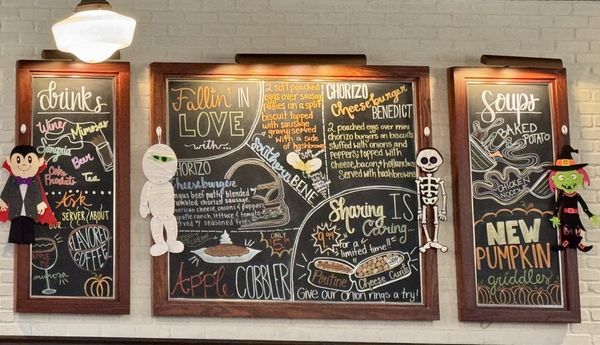 drinks
Wine
Mimosas
Sangria
Bar
Cake
Products
Tea
ask
SERVER ABOUT
FLAVORED
COFFEE
Fallin' IN
LOVE
with...
CHORIZO
Cheeseburger
Angus beef patty blended
chorizo sausage
American cheese, onions & peppers
chipotle ranch, lettuce &
seasoned fries
2 self
eggs over sausage
patties on a split
biscuit topped
with sausage
gravy served
with a
side of
hashbrowns
Southern
BENE
CHORIZO
Cheeseburger
BENEDICT
2 poached eggs over mini
chorizo burgers on biscuits
stuffed with onions and
peppers; topped with
cheese, bacon &
served with hashbrowns
ONLY
Apple COBBLER
Sharing IS
Caring...
for a
limited time!
Poutine
Cheese Curds
Give our ONION RINGS a try!
Soups
BAKED
POTATO
CHICKEN
NEW
PUMPKIN
griddles